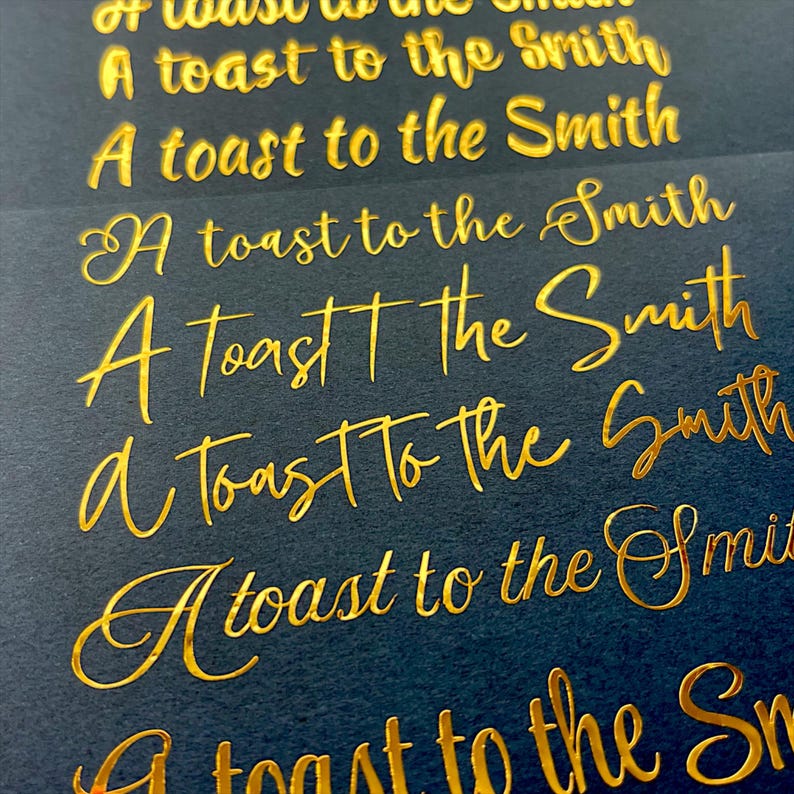 A toast to the Smith
A toast to the Smith
A toast to the Smith
A toast to the Smith
A toast T the Smith
a toast to the Smith
A toast to the Smit
A toast to the Sm